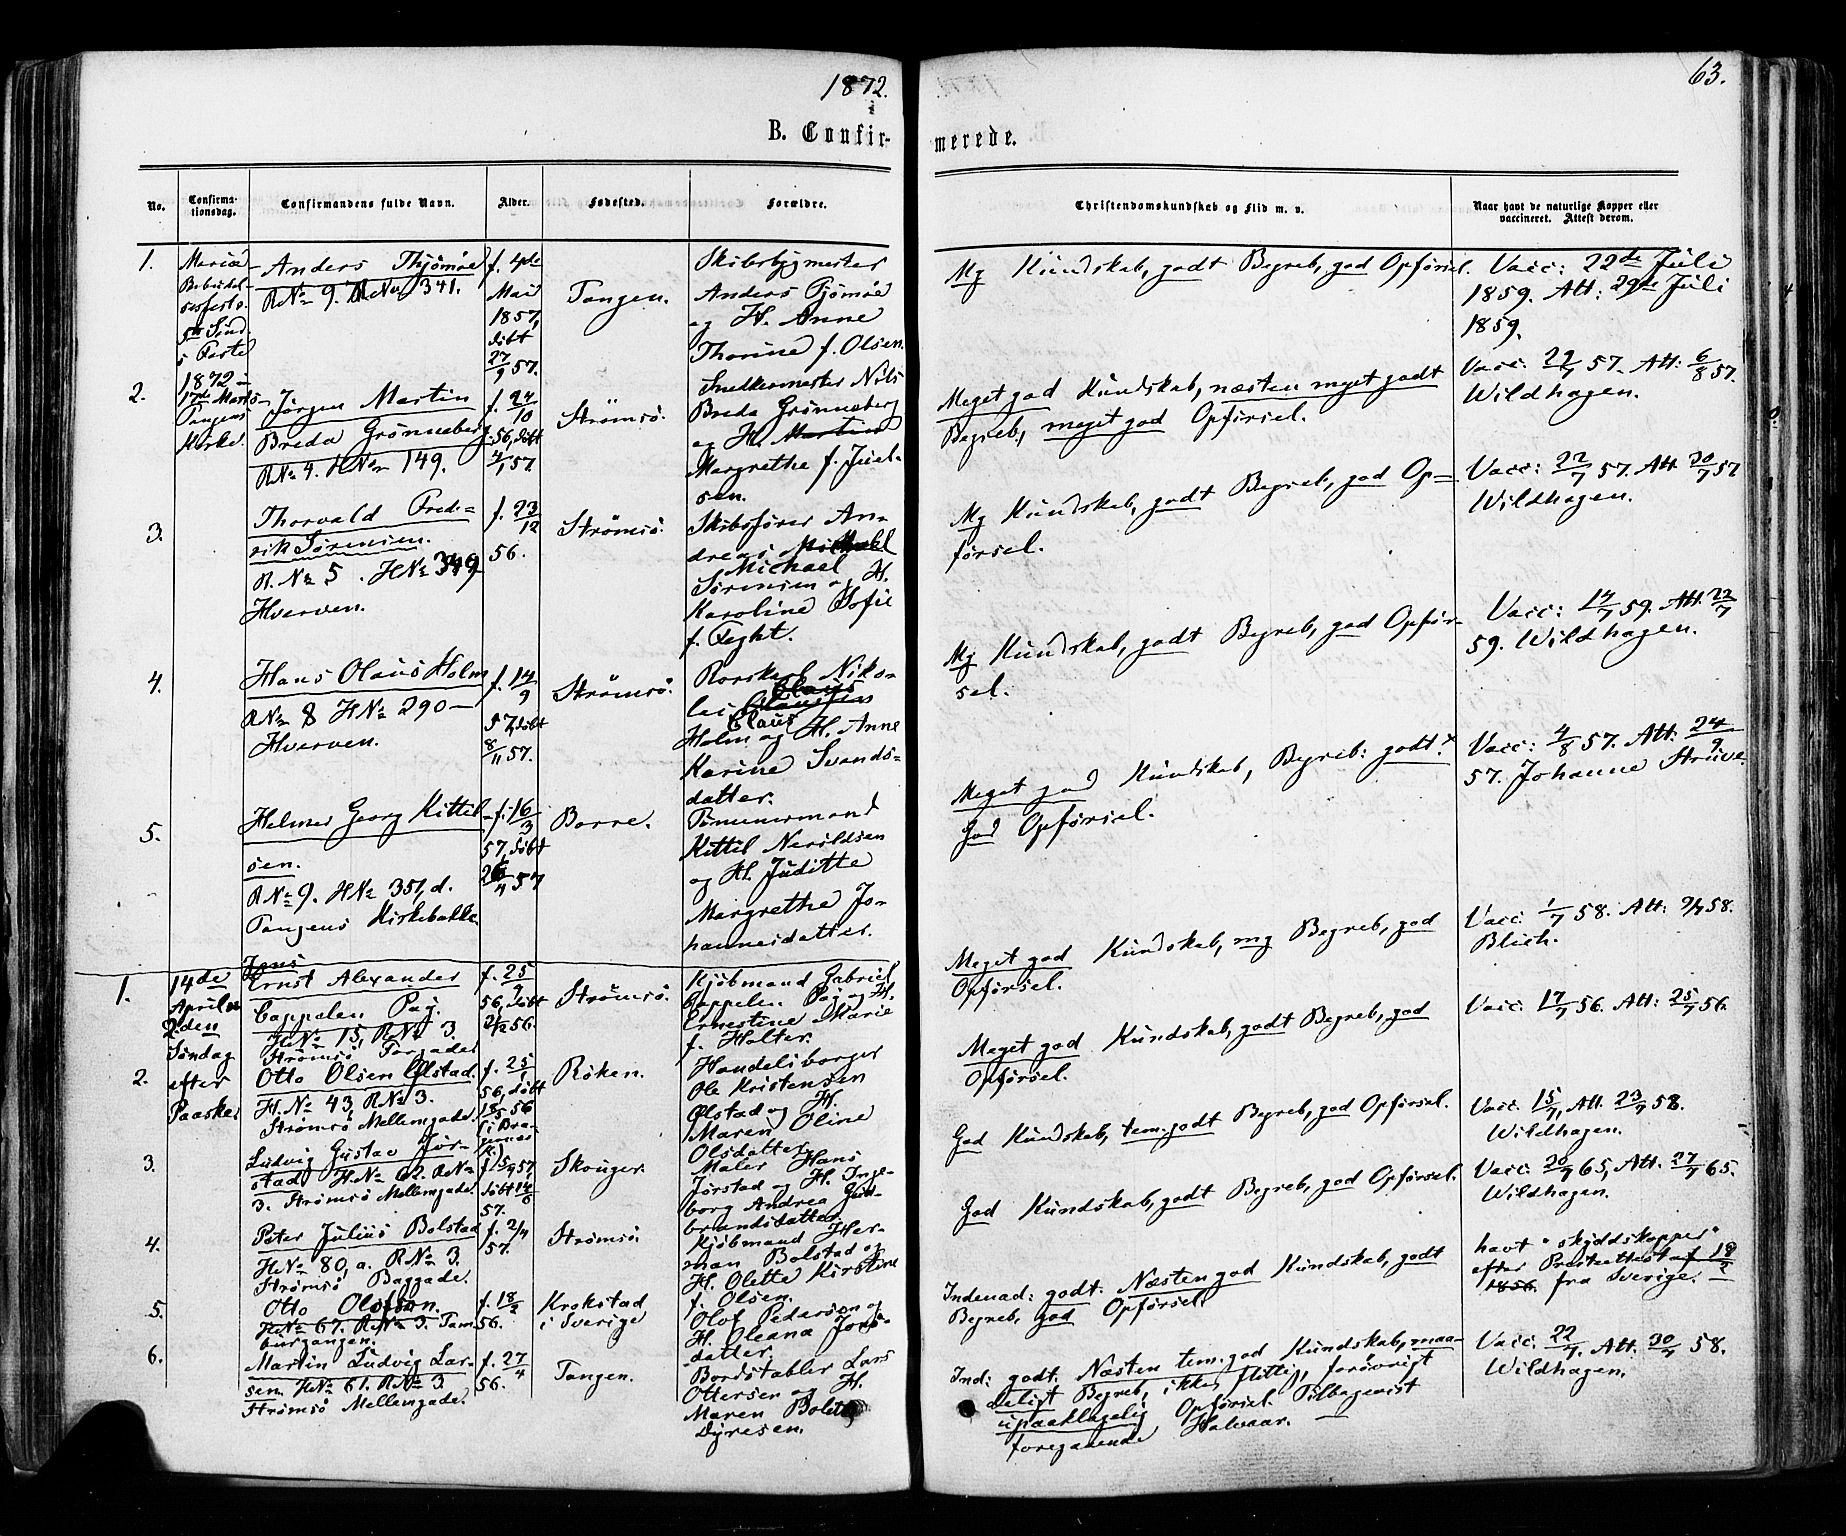 1872.
63.
B. Confir-
merede.
No.
Confirma-
tionsdag.
Confirmandens fulde Navn.
Alder.
Fødested.
Forældre.
Christendomskundskab og Flid m. v.
Naar havt de naturlige Kopper eller
vaccineret. Attest derom.
1.
Mariæ
Bebudel-
sesfest
5te Sønd.
i Faste
1872
17de Marts
Tangens
Kirke.
Anders Thjømøe
R№ 9. H№ 341.
f. 4de
Mai
1857,
døbt
27/9 57.
Tangen.
Skibsbygmester
Anders Tjømøe
og H. Anne
Thorine f. Olsen.
Mg Kundskab, godt Begreb, god Opførsel.
Vacc: 22de Juli
1859. Att: 29de Juli
1859.
2.
Jørgen Martin
Breda Grønneberg
R№ 4. H№ 149.
f. 24/10
56, døbt
4/1 57.
Strømsø.
Snedkermester Nils
Breda Grønneberg
og H. Martine
Margrethe f. Juel-
sen.
Meget god Kundskab, næsten meget godt
Begreb, meget god Opførsel.
Vacc: 22/7 57. Att: 6/8 57.
Wildhagen.
3.
Thorvald Fredе-
rik Sørensen.
R. № 5. H№ 349
Hverven.
f. 23/12
56.
Strømsø.
Skibsfører An-
dreas Michael
Michael
Sørensen og H.
Karoline Sofie
f. Feght.
Mg Kundskab, godt Begreb, god Op-
førsel.
Vacc: 22/7 57. Att. 30/7 57
Wildhagen.
4.
Hans Olaus Holm
R№ 8 H№ 290
Hverven.
f. 14/9
57, døbt
8/11 57.
Strømsø.
Rorskarl Niko-
lai
Claus
Holm og H. Anne
Karine Svends-
datter.
Mg Kundskab, godt Begreb, god Opfør-
sel.
Vacc: 14/7 59. Att. 22/7
59. Wildhagen.
5.
Helmer Georg Kittil-
sen.
R№ 9. H№ 351, d.
Tangens Kirkebakke
f. 16/3
57, døbt
26/4 57
Borre.
Tømmermand
Kittil Neridsen
og H. Juditte
Margrethe Jo-
hannesdatter.
Meget god Kundskab, Begreb: godt.
God Opførsel.
Vacc: 4/8 57. Att: 24/9
57. Johanne Strüve.
1.
14de
April
2den
Søndag
efter
Paaske
Jens
Ernst Alexander
Cappelen Pay.
H№ 15, R№ 3,
Strømsø Torgade
f. 25/9
56, døbt
21/12 56.
Strømsø.
Kjøbmand Gabriel
Cappelen Pay og H.
Ernestine Marie
f. Holter.
Meget god Kundskab, mg Begreb, god
Opførsel.
Vacc: 1/7 58. Att: 9/7 58.
Blich.
2.
Otto Olsen Ølstad.
H. № 43, R№ 3.
Strømsø Mellemgade.
f. 25/1
56, døbt
18/5 56
Røken.
Handelsborger
Ole Kristensen
Ølstad og H.
Maren Oline
Olsdatter.
Meget god Kundskab, godt Begreb, god
Opførsel.
Vacc: 17/7 56. Att: 25/7 56.
3.
Ludvig Gustav Jør-
stad H№ 62. R№
3. Strømsø Mellemgade.
f. 5/4 57
døbt 14/6
57.
Skouger.
Maler Hans
Jørstad og H. Inge-
borg Andrea Gul-
brandsdatter
God Kundskab, tem. godt Begreb, god Opførsel.
Vacc. 15/7, Att. 23/7 58.
Wildhagen.
4.
Peter Julius Bolstad
H№ 80, a. R№ 3.
Strømsø Baggade.
f. 2/4
57.
Strømsø.
Kjøbmand Her-
man Bolstad og
H. Olette Kirstine
f. Olsen.
God Kundskab, godt Begreb, god Opførsel.
Vacc: 20/7 65, Att. 27/7 65.
Wildhagen.
5.
Otto Olofsen.
H№ 67. R№ 3. Tam-
burgangen.
f. 18/2
56.
Krokstad
i Sverige
Olof Pedersen og
H. Oleana Jons-
datter.
Indenad: godt. Næsten god Kundskab, godt
Begreb, god Opførsel.
havt "skyddskopper"
efter Presteattest af 18/2
1856. fra Sverige.
6.
Martin Ludvig Lar-
sen. H№ 61. R№ 3.
Strømsø Mellemgade.
f. 27/4
56.
Tangen.
Bordstabler Lars
Ottersen og H.
Maren Bolette
Dyresen.
Ind: godt. Næsten tem. god Kundskab, maa-
deligt Begreb, ikke flittig, forøvrigt
upaaklagelig Opførsel. Tilbagevist
foregaaende Halvaar.
Vacc: 22/7. Att. 30/7 58.
Wildhagen.